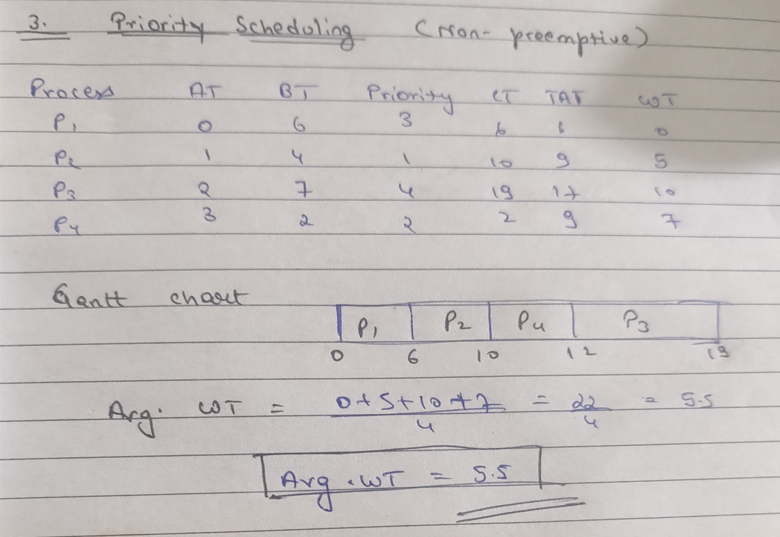 3. Priority Scheduling (Non-preemptive)
Process AT BT Priority CT TAT WT
P1 0 6 3 6 6 0
P2 1 4 1 10 9 5
P3 2 7 4 19 17 10
P4 3 2 2 2 9 7
Gantt chart
P1 P2 P4 P3
0 6 10 12 19
Avg. WT = 0+5+10+7/4 = 22/4 = 5.5
Avg. WT = 5.5